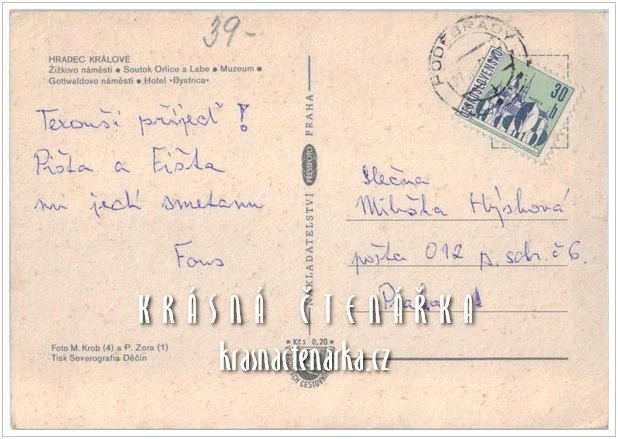 39-
HRADEC KRÁLOVÉ
Žižkovo náměstí ● Soutok Orlice a Labe ● Muzeum ●
Gottwaldovo náměstí ● Hotel »Bystrica«
Terouši přijeď!
Píšta a Fišta
mi jedí smetanu
Fous
NAKLADATELSTVÍ PRESSFOTO PRAHA
PODĚBRADY
ČESKOSLOVENSKO
30 h
slečna
Miluška Hýsková
pošta 012 p. schr. č 6.
Praha 1
KRÁSNÁ ČTENÁŘKA
krasnactenarka.cz
Kčs 0,20
Foto M. Krob (4) a P. Zora (1)
Tisk Severografia Děčín